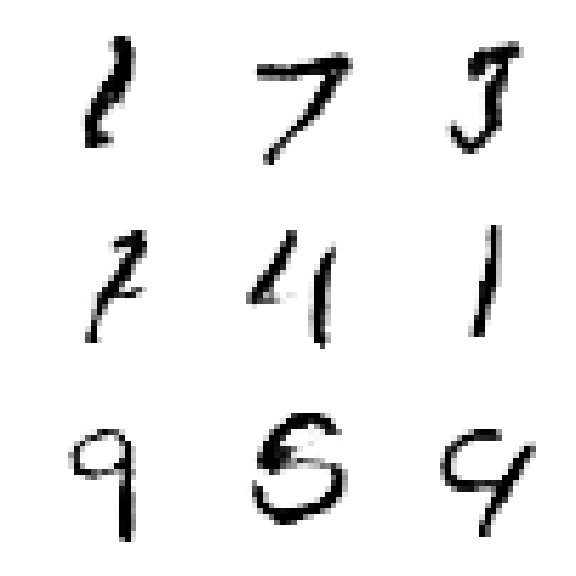 7 3
7 4 1
9 5 9